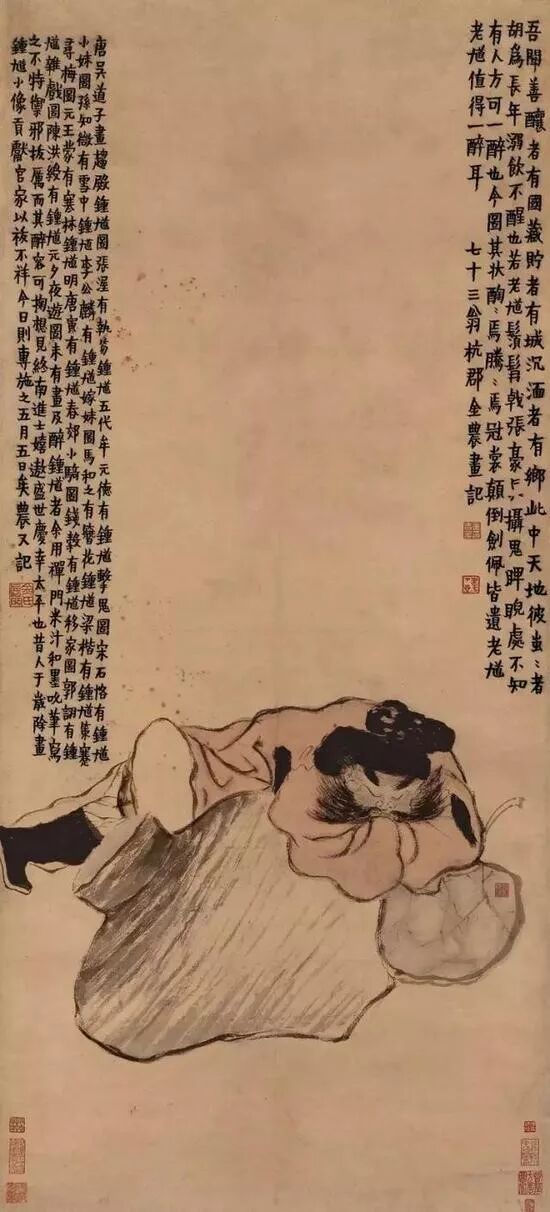 吾聞善釀者有國藏貯者有城沉湎者有鄉此中天地彼蚩〻者
胡為長年溺飲不醒也若老馗鬚髯戟張豪攝鬼睥睨處不知
有人方可一醉也今圖其狀〻焉騰〻焉冠裳顛倒劍佩皆遺老馗
老馗值得一醉耳 七十三翁杭郡金農畫記
唐吳道子畫趨殿鍾馗圖張渥有執笏鍾馗五代牟元德有鍾馗擊鬼圖宋石恪有鍾馗
小妹圖孫知微有雪中鍾馗李公麟有鍾馗嫁妹圖馬和之有簪花鍾馗梁楷有鍾馗策蹇
尋梅圖元王蒙有寒林鍾馗明唐寅有鍾馗春郊小騎圖錢榖有鍾馗移家圖郭詡有鍾
馗雜戲圖陳洪綬有鍾馗元夕夜遊圖未有畫及醉鍾馗者余用禪門米汁和墨吮筆寫
之不特禦邪拔厲而其醉容可掬想見終南進士嬉遨盛世慶幸太平也昔人于歲除畫
鍾馗小像貢獻官家以祓不祥今日則專施之五月五日矣農又記